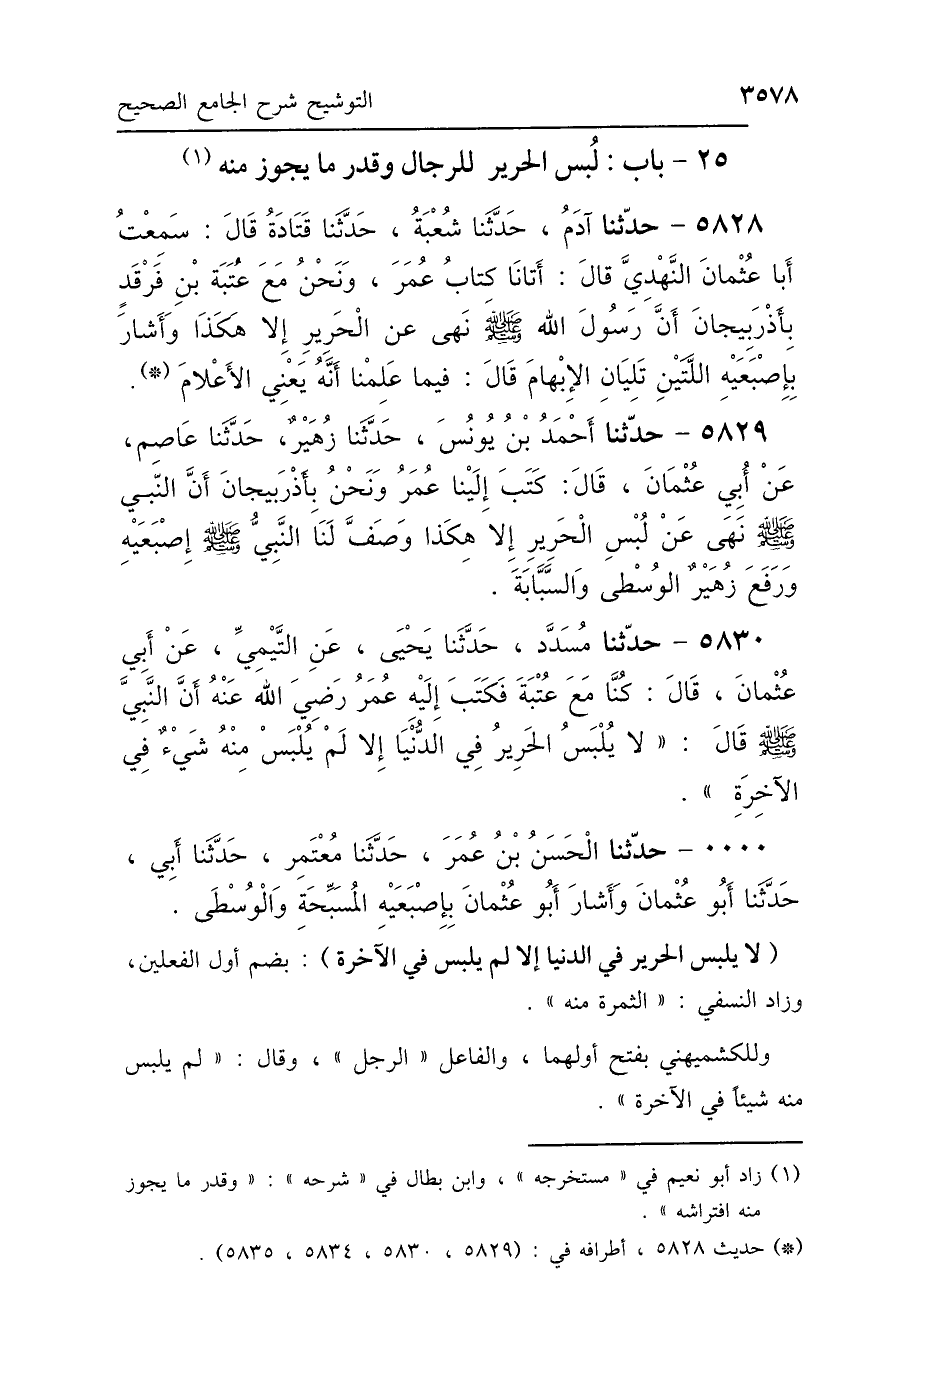 ٣٥٧٨
التوشيح شرح الجامع الصحيح
٢٥ - باب : لُبس الحرير للرجال وقدر ما يجوز منه (١)
٥٨٢٨ - حدّثنا آدَمُ ، حَدَّثَنا شُعْبَةُ ، حَدَّثَنا قَتَادَةُ قَالَ : سَمَعْتُ
أَبا عُثْمانَ النَّهْدِيَّ قالَ : أَتانَا كِتابُ عُمَرَ ، وَنَحْنُ مَعَ عُتْبَةَ بْنِ فَرْقَدٍ
بِأَذْرَبِيجانَ أَنَّ رَسُولَ الله ﷺ نَهى عن الْحَرِيرِ إلا هكَذَا وَأَشارَ
بِإِصْبَعَيْهِ اللَّتَيْنِ تَلِيَانِ الإِبْهامَ قَالَ : فيما عَلِمْنا أَنَّهُ يَعْنِي الأَعْلامَ (*) .
٥٨٢٩ - حدّثنا أَحْمَدُ بْنُ يُونُسَ ، حَدَّثَنا زُهَيْرٌ، حَدَّثَنا عَاصِم،
عَنْ أَبِي عُثْمَانَ ، قَالَ: كَتَبَ إِلَيْنا عُمَرُ وَنَحْنُ بِأَذْرَبِيجانَ أَنَّ النَّبي
ﷺ نَهَى عَنْ لُبْسِ الْحَرِيرِ إلا هكَذا وَصَفَّ لَنَا النَّبِيُّ ﷺ إِصْبَعَيْهِ
وَرَفَعَ زُهَيْرٌ الوُسْطى وَالسَّبَّابَةَ .
٥٨٣٠ - حدّثنا مُسَدَّد ، حَدَّثَنا يَحْيَى ، عَنِ التَّيْمِيِّ ، عَنْ أَبِي
عُثْمانَ ، قَالَ : كُنَّا مَعَ عُتْبَةَ فَكَتَبَ إِلَيْهِ عُمَرُ رَضِيَ الله عَنْهُ أَنَّ النَّبِيَّ
ﷺ قَالَ : « لا يُلْبَسُ الحَرِيرُ فِي الدُّنْيَا إلا لَمْ يُلْبَسْ مِنْهُ شَيْءٌ فِي
الآخِرَةِ » .
٠٠٠٠ - حدّثنا الْحَسَنُ بْنُ عُمَرَ ، حَدَّثَنا مُعْتَمِر ، حَدَّثَنا أَبِي ،
حَدَّثَنا أَبُو عُثْمانَ وَأَشارَ أَبُو عُثْمانَ بِإِصْبَعَيْهِ المُسَبِّحَةِ وَالْوُسْطَى .
( لا يلبس الحرير في الدنيا إلا لم يلبس في الآخرة ) : بضم أول الفعلين،
وزاد النسفي : « الثمرة منه » .
وللكشميهني بفتح أولهما ، والفاعل « الرجل » ، وقال : « لم يلبس
منه شيئاً في الآخرة » .
(١) زاد أبو نعيم في « مستخرجه » ، وابن بطال في « شرحه » : « وقدر ما يجوز
منه افتراشه » .
(*) حديث ٥٨٢٨ ، أطرافه في : (٥٨٢٩ ، ٥٨٣٠ ، ٥٨٣٤ ، ٥٨٣٥) .